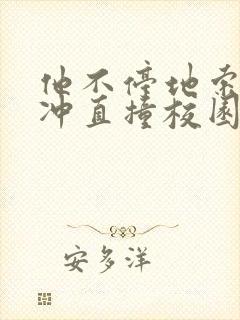 他不停地索
冲直撞校园
安多洋